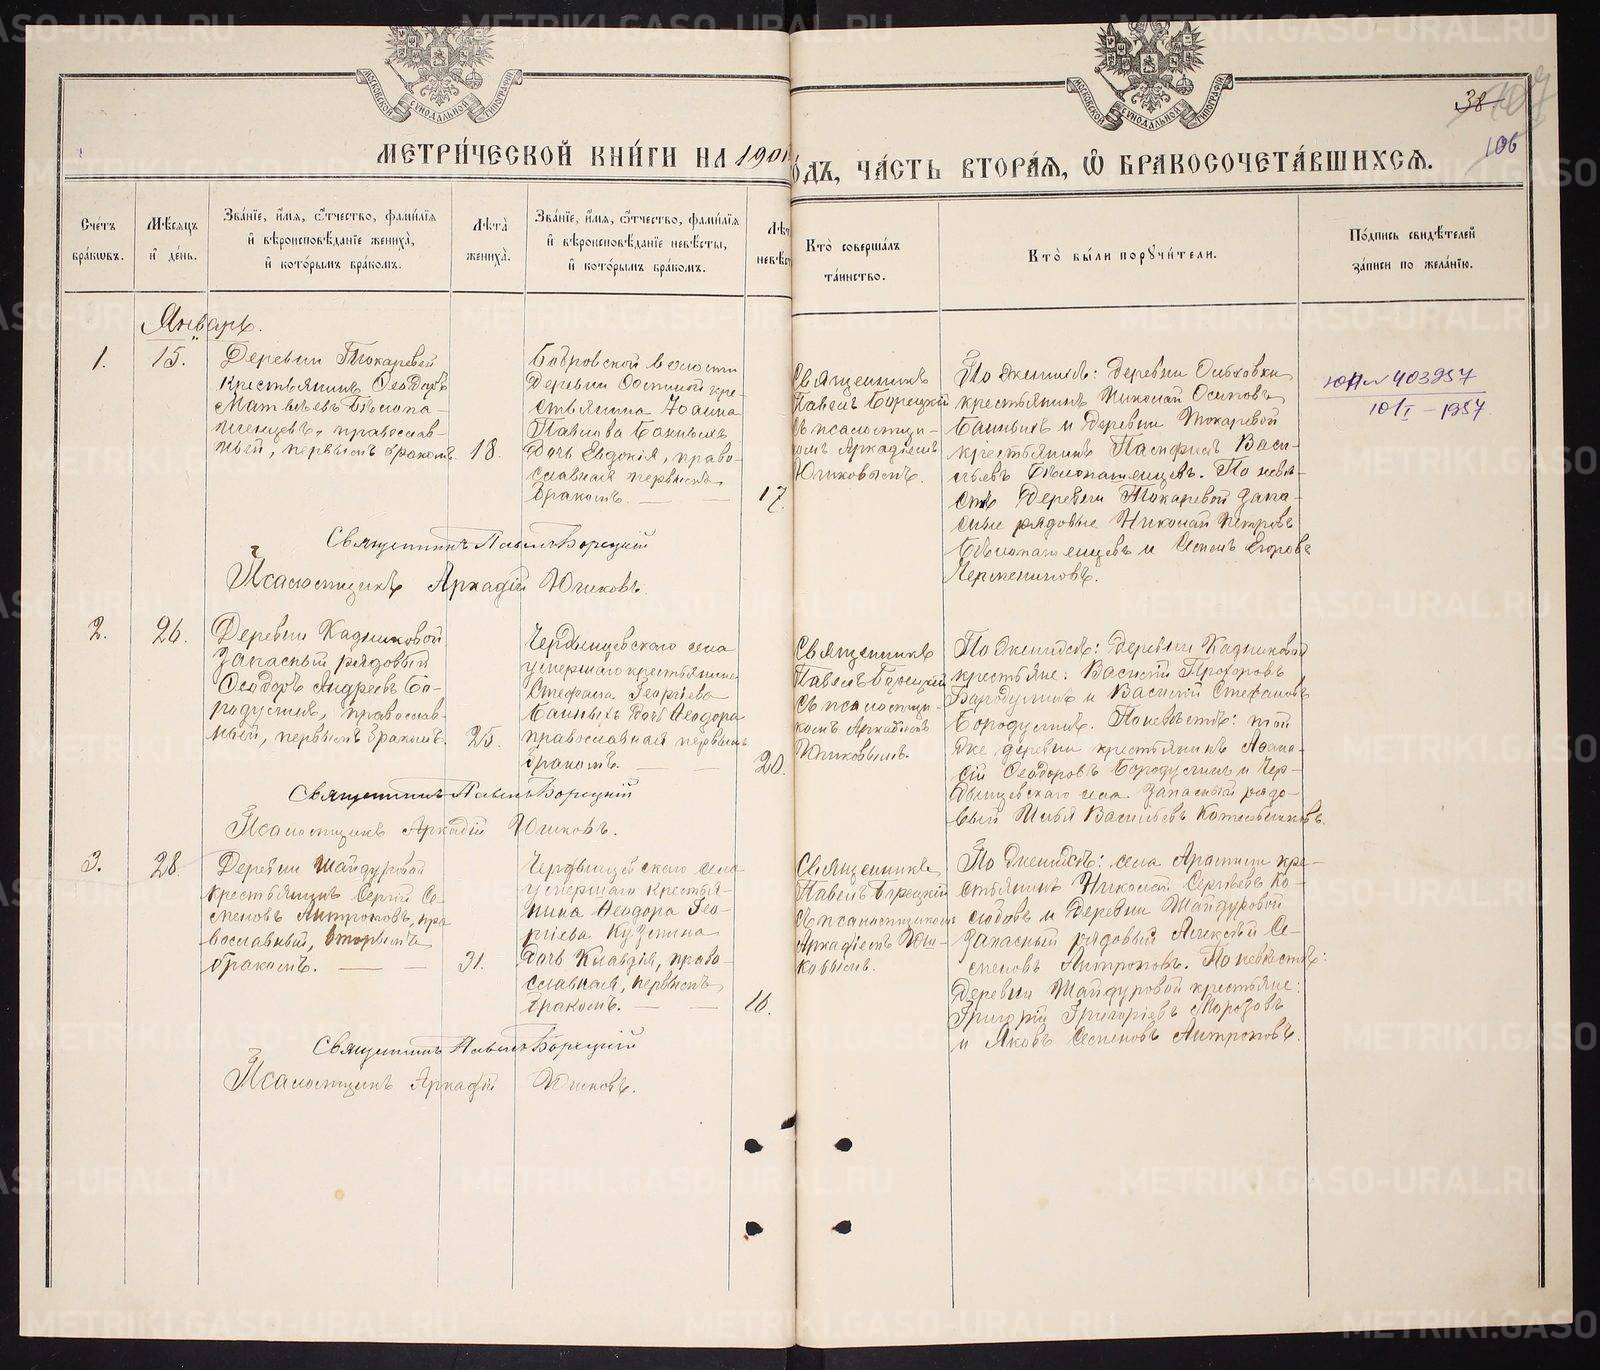 МЕТРИ́ЧЕСКОЙ КНИ́ГИ НА 1901
О́ДЪ, ЧА́СТЬ ВТОРА́Я, Ѽ БРАКОСОЧЕТА́ВШИХСЯ.
38
106
Сче́тъ бра́кωвъ.
Мѣ́сяцъ и҆ де́нь.
Зва́нїе, и҆́мя, ѻ҆́тчество, фами́лїя и҆ вѣроисповѣ́данїе жениха̀, и҆ кото́рымъ бра́комъ.
Лѣ́та жениха̀.
Зва́нїе, и҆́мя, ѻ҆́тчество, фами́лїя и҆ вѣроисповѣ́данїе невѣ́сты, и҆ кото́рымъ бра́комъ.
Лѣ́т невѣ́с
Кто̀ соверша́лъ та́инство.
Кто̀ бы́ли порꙋчи́тели.
По́дпись свидѣ́телей за́писи по жела́нїю.
Январь.
1.
15.
Деревни Токаревой
крестьянинъ Ѳеодоръ
Матвѣевъ Бѣлопа-
шенцевъ, православ-
ный, первымъ бракомъ
18.
Бобровской волости
деревни крe-
стьянина Іоанна
Павлова Банныхъ
дочь Евдокія, право-
славная первымъ
бракомъ.
17.
Священникъ
Павелъ Борецкій
съ псаломщи-
комъ Аркадіемъ
Юшковымъ.
По женихѣ: деревни Ольховки
крестьянинъ Николай Осиповъ
Банныхъ и деревни Токаревой
крестьянинъ Панфилъ Васи-
льевъ Бѣлопашенцевъ. По невѣ-
стѣ деревни Токаревой запа-
сные рядовые Николай Петровъ
Бѣлопашенцевъ и Семенъ Егоровъ
403957
10/I – 1957
Священникъ Павелъ Борецкій
Псаломщикъ Аркадій Юшковъ.
2.
26.
Деревни Кадниковой
запасный рядовый
Ѳеодоръ Андреевъ Бо-
родулинъ, православ-
ный, первымъ бракомъ.
25.
Чердынцевскаго села
умершаго крестьянина
Стефана Георгіева
Банныхъ дочь Ѳеодора
православная первымъ
бракомъ.
20.
Священникъ
Павелъ Борецкій
съ псаломщи-
комъ Аркадіемъ
Юшковымъ.
По женихѣ: деревни Кадниковой
крестьяне: Василій Прохоровъ
Бородулинъ и Василій Стефановъ
Бородулинъ. По невѣстѣ: той
же деревни крестьянинъ Аѳана-
сій Ѳеодоровъ Бородулинъ и Чер-
дынцевскаго села запасный рядо-
вый Илья Васильевъ Котельниковъ.
Священникъ Павелъ Борецкій
Псаломщикъ Аркадій Юшковъ.
3.
28.
Деревни Шайдуровой
крестьянинъ Сергій Се-
меновъ Антроповъ, пра-
вославный, вторымъ
бракомъ.
31.
Чердынцевскаго села
умершаго крестья-
нина Ѳеодора Гео-
ргіева Кузмина
дочь Клавдія, право-
славная, первымъ
бракомъ.
Священникъ
Павелъ Борецкій
съ псаломщикомъ
Аркадіемъ Юш-
ковымъ.
По женихѣ: села Арамили кре-
стьянинъ Николай Сергѣевъ Ко-
и деревни Шайдуровой
запасный рядовый Алексѣй Се-
меновъ Антроповъ. По невѣстѣ:
деревни Шайдуровой крестьяне:
Григорій Григорьевъ Морозовъ
и Яковъ Семеновъ Антроповъ.
Священникъ Павелъ Борецкій
Псаломщикъ Аркадій Юшковъ.
METRIKI.GASO-URAL.RU